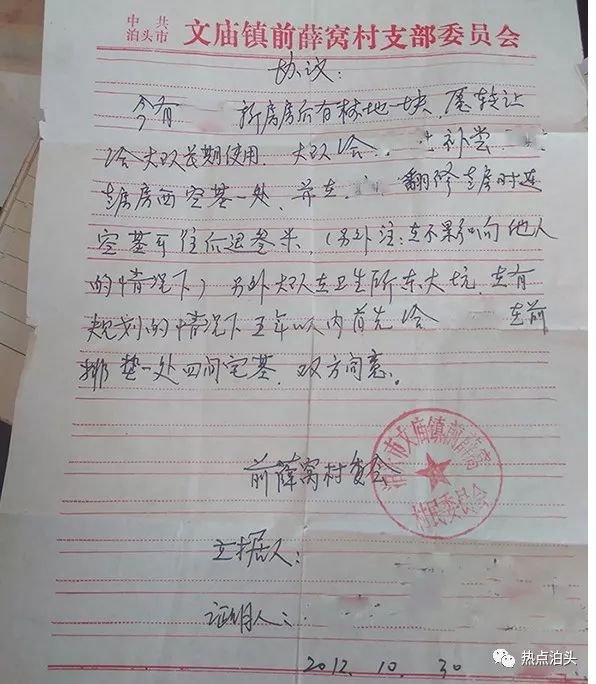 中共
泊头市 文庙镇前薛窝村支部委员会
协议:
今有 新房房后有林地一块,愿转让
给大队长期使用,大队给 补尝
老房西空基一处,并在 翻修老房时连
空基可往后退叁米,(另外注:在不影响他人
的情况下)另外大队在卫生所东大坑,在有
规划的情况下五年以内首先给 在前
排垫一处四间宅基,双方同意。
前薛窝村委会
泊头市文庙镇前薛窝
村民委员会
立据人:
证明人:
2012.10.30
热点泊头